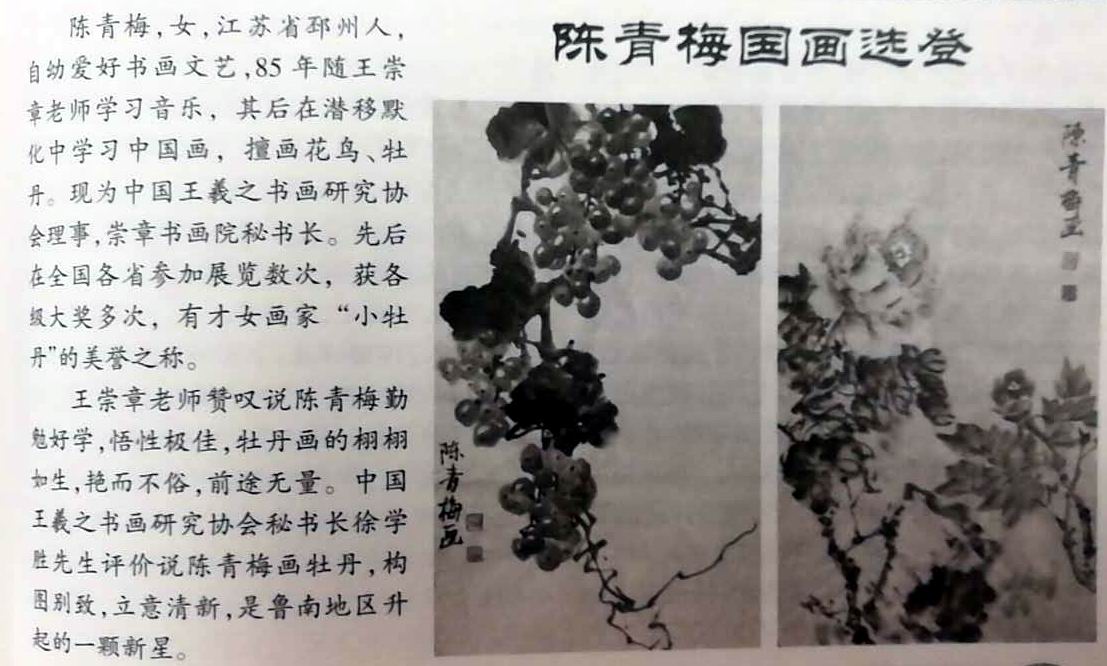 陈青梅国画选登
陈青梅,女,江苏省邳州人,
自幼爱好书画文艺,85年随王崇
章老师学习音乐，其后在潜移默
化中学习中国画，擅画花鸟、牡
丹。现为中国王羲之书画研究协
会理事,崇章书画院秘书长。先后
在全国各省参加展览数次，获各
级大奖多次，有才女画家“小牡
丹”的美誉之称。
王崇章老师赞叹说陈青梅勤
勉好学,悟性极佳,牡丹画的栩栩
如生,艳而不俗,前途无量。中国
王羲之书画研究协会秘书长徐学
胜先生评价说陈青梅画牡丹,构
图别致,立意清新,是鲁南地区升
起的一颗新星。
陈青梅画
陈青梅画